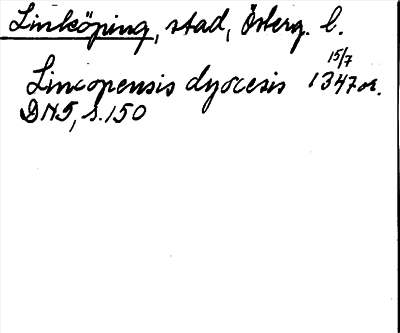 Linköping, stad, Österg. l.
Lincopensis dyocesis 15/7 1347 or.
DN5, s.150